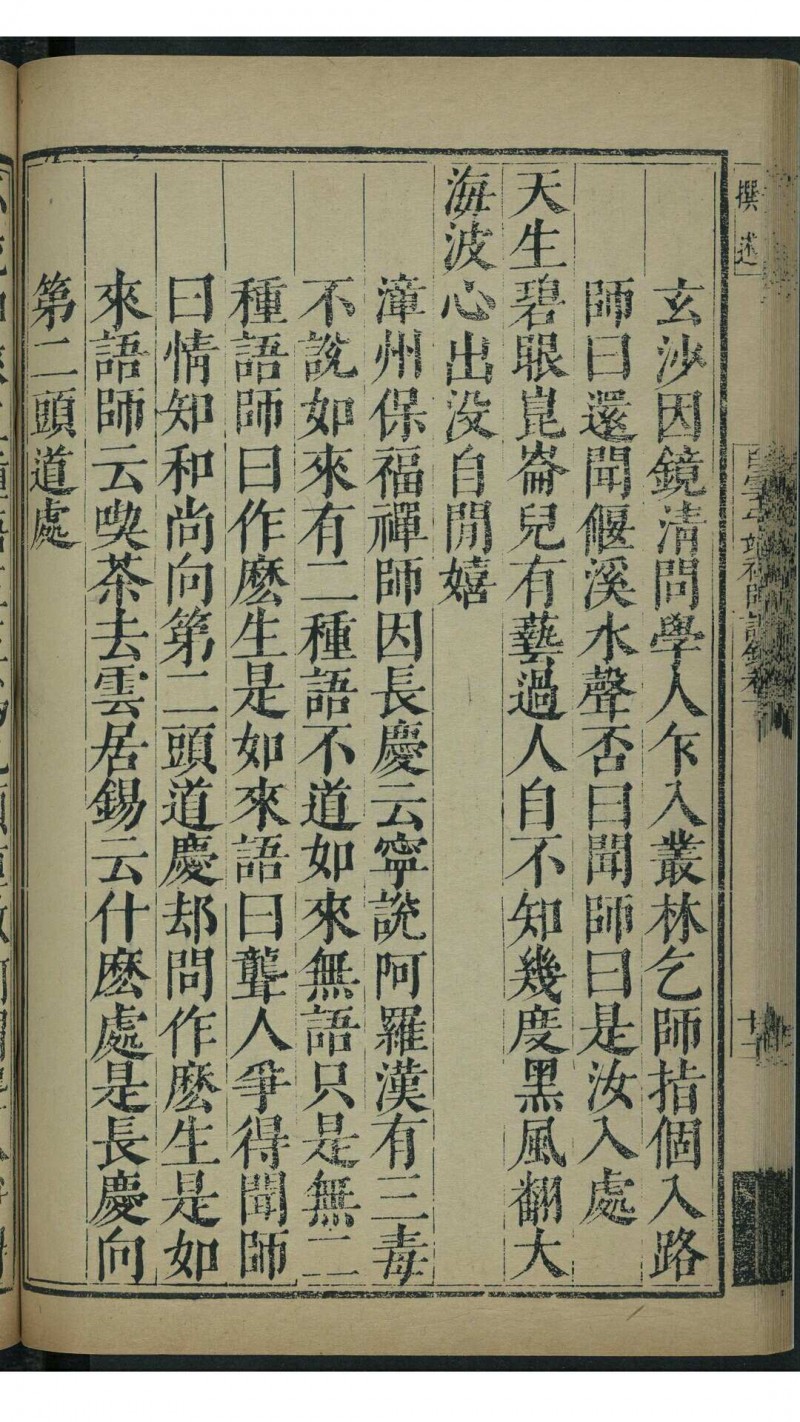 玄沙因鏡清問學人乍入叢林乞師指個入路
師曰還聞偃溪水聲否曰聞師曰是汝入處
天生碧眼崑崙兒有藝過人自不知幾度黑風翻大
海波心出没自閒嬉
漳州保福禪師因長慶云寧說阿羅漢有三毒
不說如來有二種語不道如來無語只是無二
種語師曰作麽生是如來語曰聾人爭得聞師
曰情知和尚向第二頭道慶却問作麽生是如
來語師云喫茶去雲居錫云什麽處是長慶向
第二頭道處
撰述